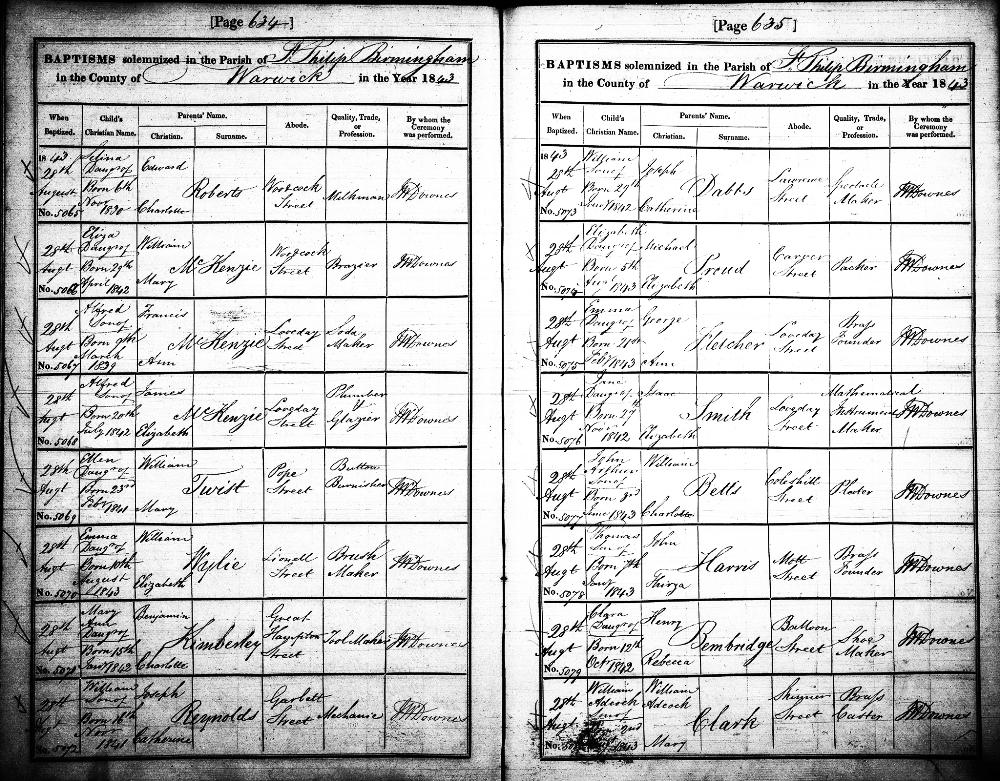 [Page 634]
BAPTISMS solemnized in the Parish of St. Philip Birmingham
in the County of Warwick in the Year 1843
When Baptized. Child's Christian Name. Parents' Name. Christian. Surname. Abode. Quality, Trade, or Profession. By whom the Ceremony was performed.
1843 28th August No. 5065 Selina Daugr of Born 6th Novr 1830 Edward Charlotte Roberts Woodcock Street Milkman JWDownes
28th Augt No. 5066 Eliza Daugr of Born 29th April 1842 William Mary McKenzie Woodcock Street Brazier JWDownes
28th Augt No. 5067 Alfred Son of Born 9th March 1839 Francis Ann McKenzie Loveday Street Soda Maker JWDownes
28th Augt No. 5068 Alfred Son of Born 20th July 1842 James Elizabeth McKenzie Loveday Street Plumber & Glazier JWDownes
28th Augt No. 5069 Ellen Daugr of Born 23rd Febr 1841 William Mary Twist Pope Street Button Burnisher JWDownes
28th Augt No. 5070 Emma Daugr of Born 10th August 1843 William Elizabeth Wylie Lionell Street Brush Maker JWDownes
28th Augt No. 5071 Mary Ann Daugr of Born 15th Jany 1842 Benjamin Charlotte Kimberley Great Hampton Street Tool Maker JWDownes
28th No. 5072 William Son of Born 16th Novr 1841 Joseph Catherine Reynolds Garbett Street Mechanic JWDownes
[Page 635]
BAPTISMS solemnized in the Parish of St. Philip Birmingham
in the County of Warwick in the Year 1843
When Baptized. Child's Christian Name. Parents' Name. Christian. Surname. Abode. Quality, Trade, or Profession. By whom the Ceremony was performed.
1843 28th Augt No. 5073 William Son of Born 29th Jany 1842 Joseph Catherine Dabbs Lawrence Street Spectacle Maker JWDownes
28th Augt No. 5074 Elizabeth Daugr of Born 5th 1843 Michael Elizabeth Proud Carver Street Packer JWDownes
28th Augt No. 5075 Emma Daugr of Born 21st Feby 1843 George Ann Fletcher Loveday Street Brass Founder JWDownes
28th Augt No. 5076 Jane Daugr of Born 27 Novr 1842 Isaac Elizabeth Smith Loveday Street Mathematical Instrument Maker JWDownes
28th Augt No. 5077 John Arthur Son of Born 3rd June 1843 William Charlotte Bells Coleshill Street Plater JWDownes
28th Augt No. 5078 Thomas Son of Born 7th Jany 1843 John Thirza Harris Mott Street Brass Founder JWDownes
28th Augt No. 5079 Clara Daugr of Born 12th Oct 1842 Henry Rebecca Bembridge Balloon Street Shoe Maker JWDownes
28th Augt William Adcock Son of 2nd 1843 William Adcock Mary Clark Skinner Street Brass Caster JWDownes